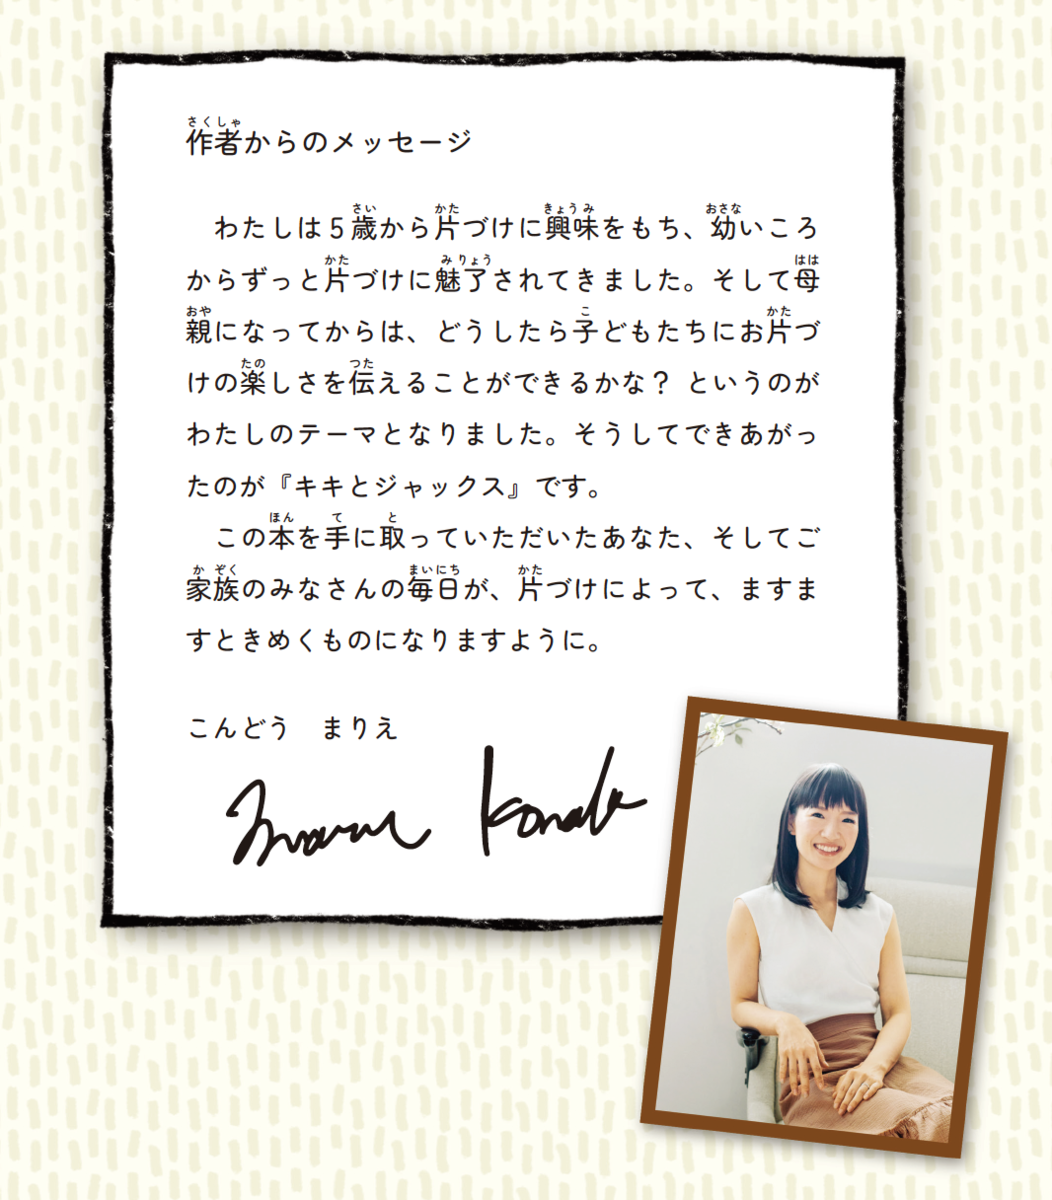 作者からのメッセージ
わたしは5歳から片づけに興味をもち、幼いころ
からずっと片づけに魅了されてきました。そして母
親になってからは、どうしたら子どもたちにお片づ
けの楽しさを伝えることができるかな? というのが
わたしのテーマとなりました。そうしてできあがっ
たのが『キキとジャックス』です。
この本を手に取っていただいたあなた、そしてご
家族のみなさんの毎日が、片づけによって、ますま
すときめくものになりますように。
こんどう まりえ
Marie Kondo